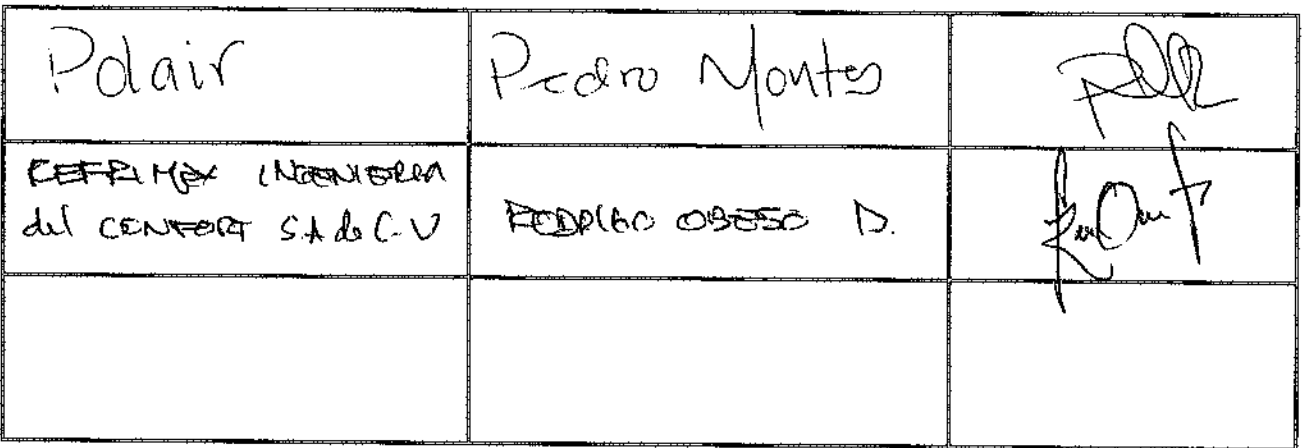 Polair
Pedro Montes
REFRIMEX INGENIERIA
del CONFORT S.A de C.V
RODRIGO OBESO D.